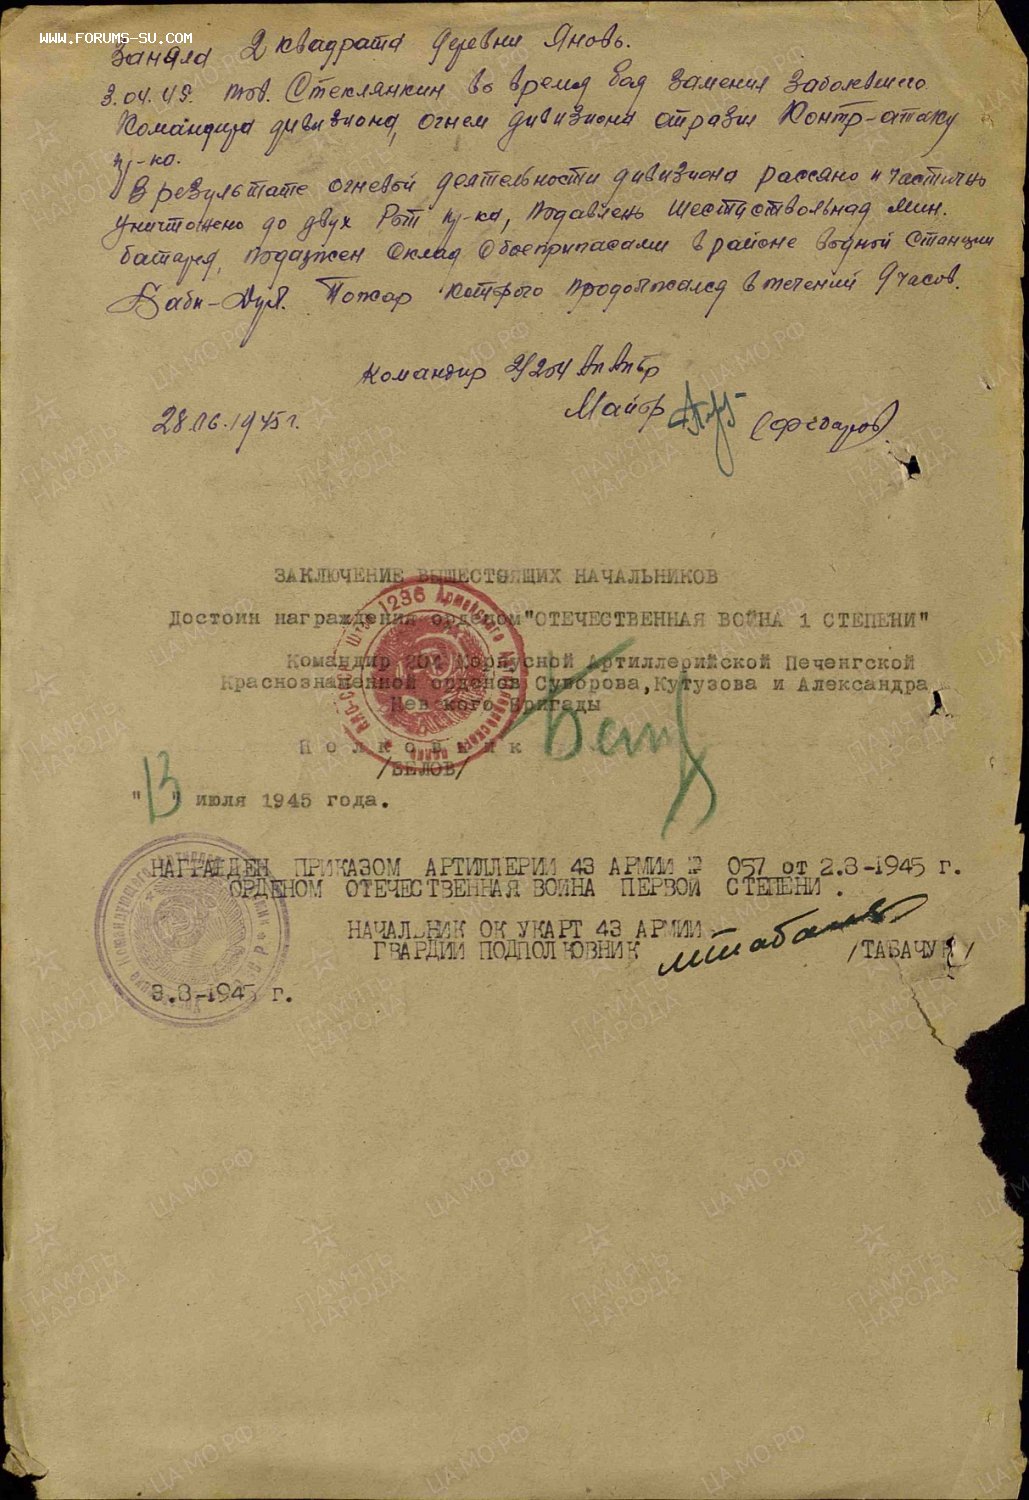 WWW.FORUMS-SU.COM
Заняла 2 квадрата деревни Яновь.
3.04.45. тов. Стеклянкин во время боя заменил заболевшего
Командира дивизиона, огнем дивизиона отразил Контр-атаку
пр-ка.
В результате огневой деятельности дивизиона рассяно и частично
уничтожено до двух Рот пр-ка, подавлень шестиствольная мин.
батарея, подажжен склад с боеприпасами в районе водной станции
Пожар которого продолжался в течений 9 часов.
Командир
Майор (Федоров)
28.06.1945 г.
ЗАКЛЮЧЕНИЕ ВЫШЕСТОЯЩИХ НАЧАЛЬНИКОВ
Достоин награждения орденом "ОТЕЧЕСТВЕННАЯ ВОЙНА 1 СТЕПЕНИ"
Командир 204 Корпусной Артиллерийской Печенгской
Краснознаменной орденов Суворова, Кутузова и Александра
Невского Бригады
Полковник
/БЕЛОВ/
"13" июля 1945 года.
1236 Армейского
НАГРАЖДЕН ПРИКАЗОМ АРТИЛЛЕРИИ 43 АРМИИ № 057 от 2.8-1945 г.
ОРДЕНОМ ОТЕЧЕСТВЕННАЯ ВОЙНА ПЕРВОЙ СТЕПЕНИ.
НАЧАЛЬНИК ОК УКАРТ 43 АРМИИ
ГВАРДИИ ПОДПОЛКОВНИК /ТАБАЧУК/
3.8-1945 г.
ПАМЯТЬ НАРОДА
ЦА МО РФ